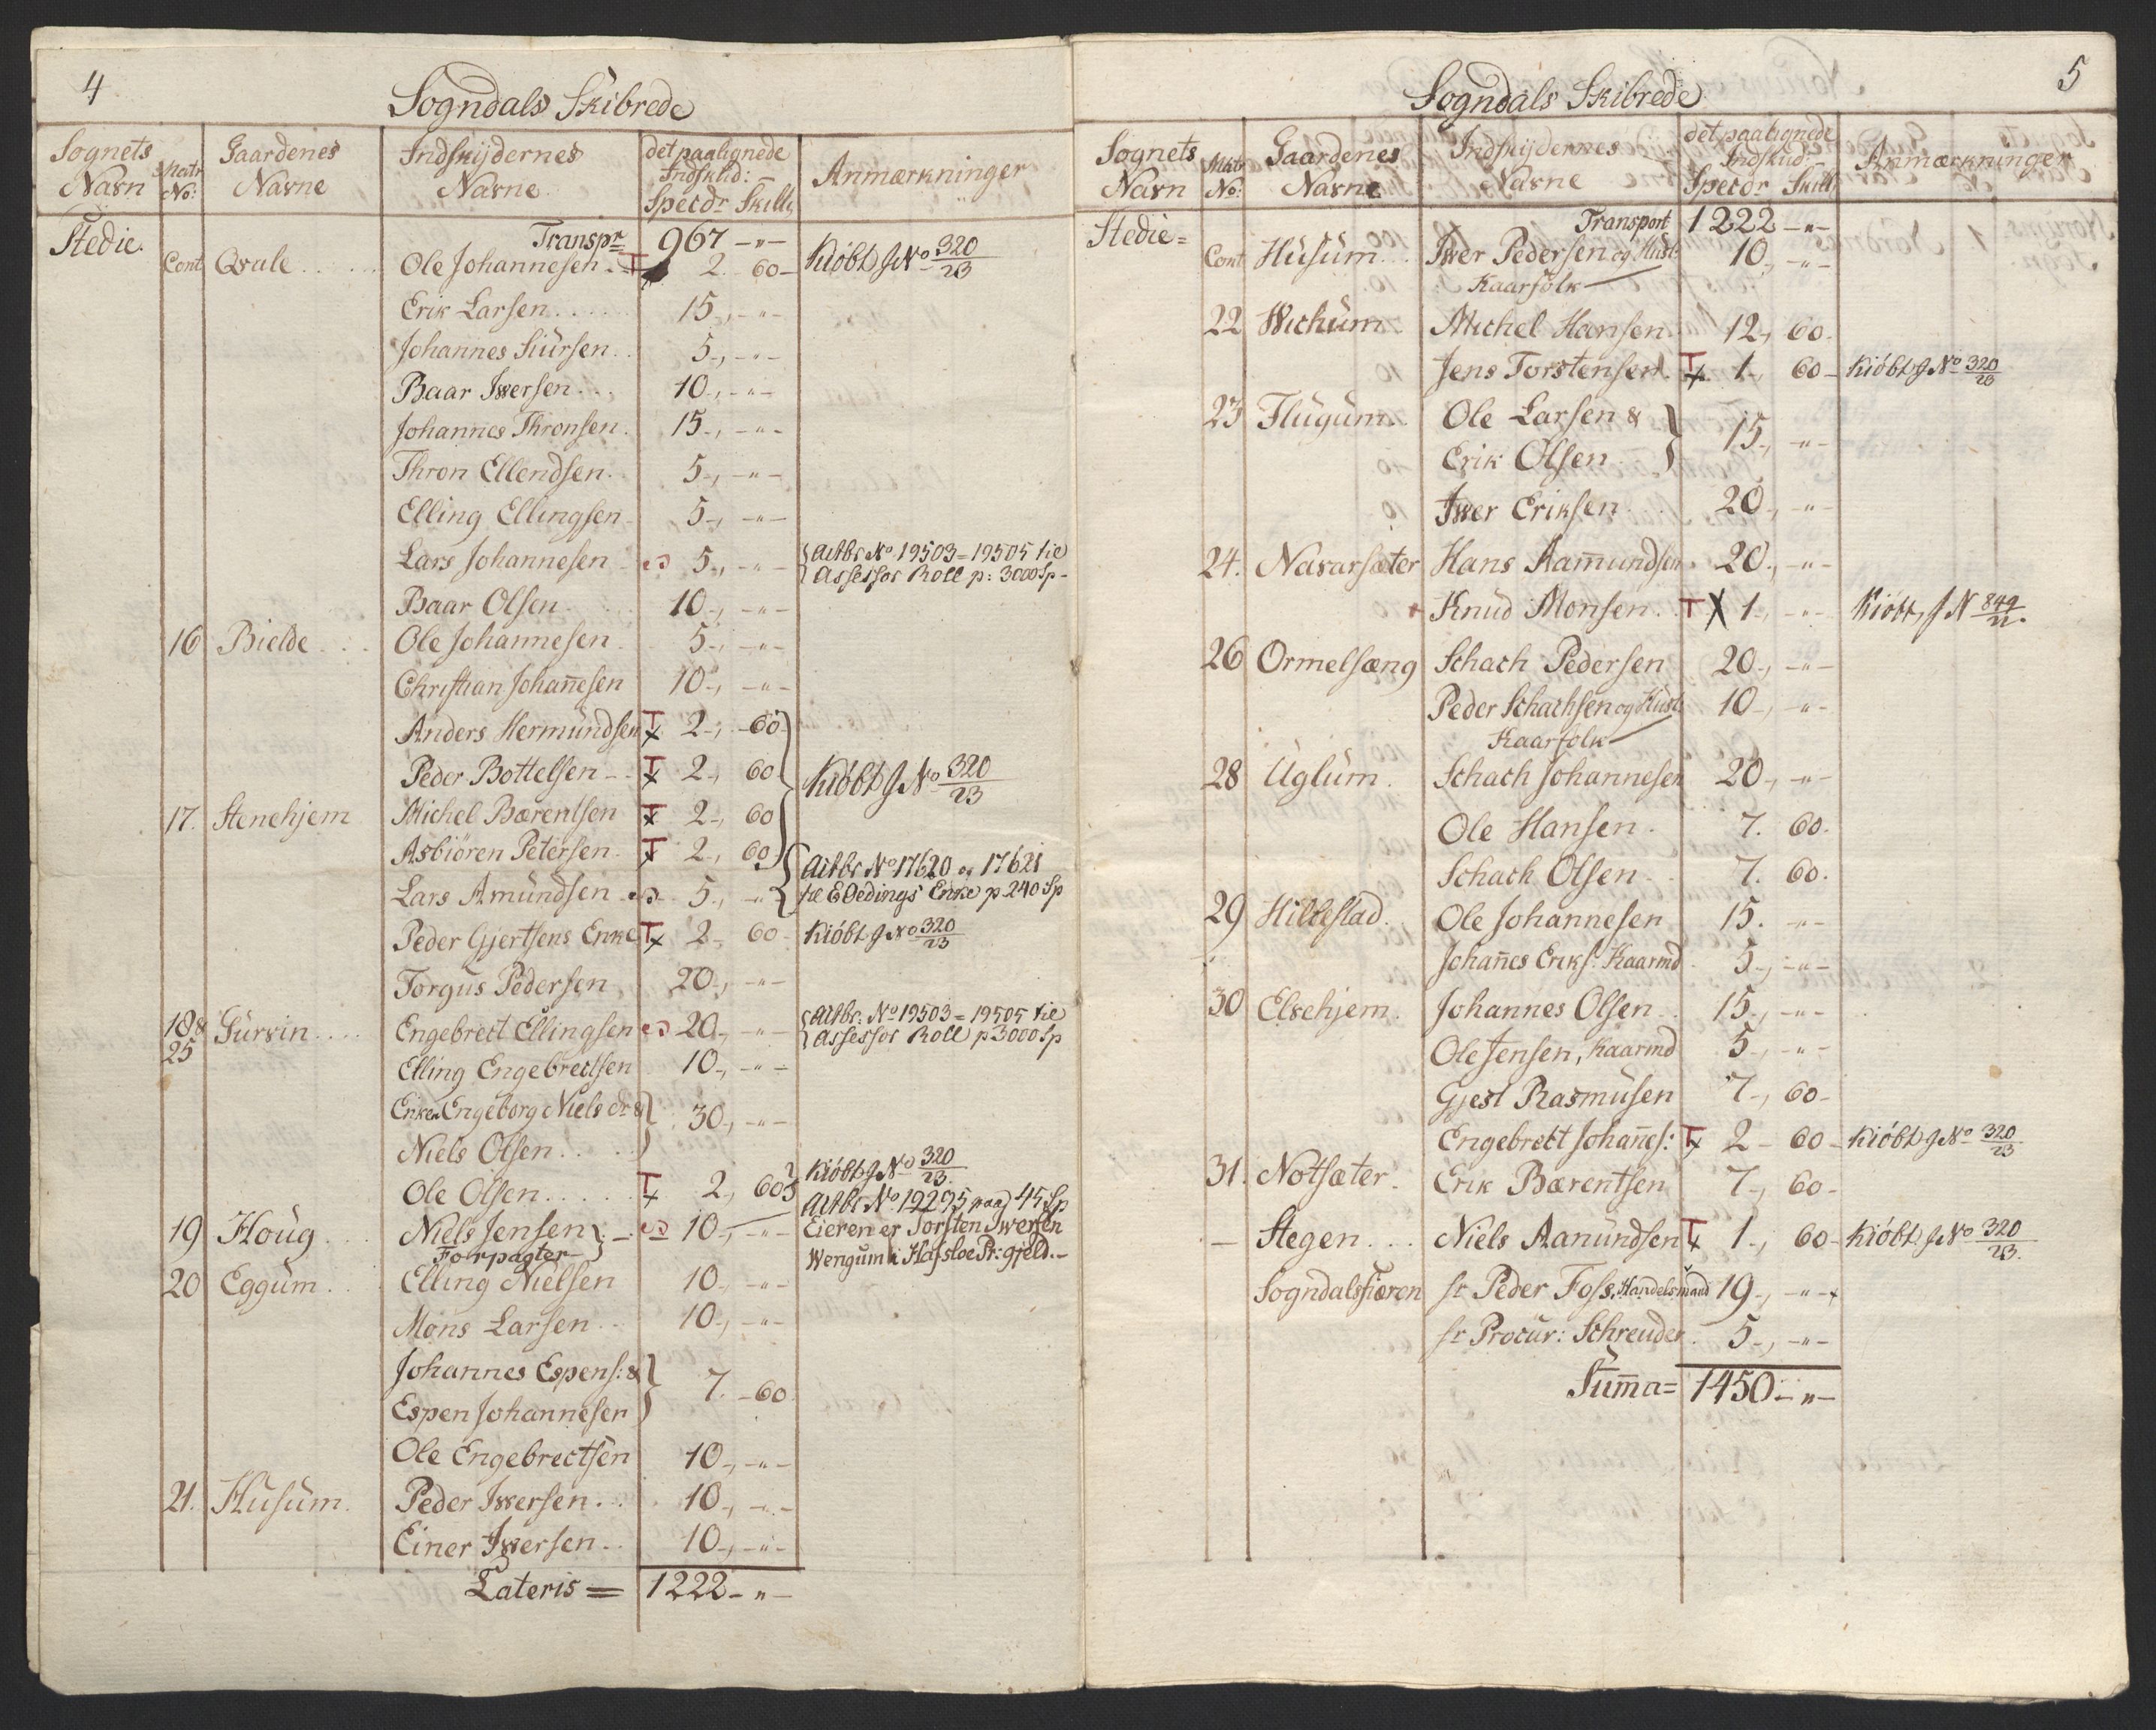 4
Sogndals Skibrede
Sognets Navn | Matr No: | Gaardenes Navne | Indskydernes Navne | det paalignede Indskud: Specdr Skillg | Anmærkninger
Stedie. Transpr 967 - " -
Cont Qvale . . . . Ole Johannesen . T 2. 60 - Kiöbt J No 320/23
Erik Larsen . . . . . 15 -, - " -
Johannes Siursen . . 5 -, - " -
Baar Iversen . . . 10 -, - " -
Johannes Thronsen . 15 -, - " -
Thron Ellendsen . 5 -, - " -
Elling Ellingsen - 5 -, - " -
Lars Johannesen 5 -, - " - { Actbr No 19503 = 19505 til
Assessor Roll p: 3000 Sp -
Baar Olsen . . . 10 -, - " -
16 Bielde . . . Ole Johannesen . 5 -, - " -
Christian Johan̄esen 10 -, - " -
Anders Hermundsen T x 2 -, - 60 }
Peder Bottelsen - - T x 2 -, 60 Kiöbt J No 320/23
17. Stenehjem Michel Bærentsen T x 2 -, 60
Asbiören Petersen . T x 2 -, 60 } { Actbr No 17620 og 17621
Lars Amundsen 5 -, - " - til E Oedings Enke p 240 Sp
Peder Gjertsens Enke T x 2 - 60 - Kiöbt J No 320/23
Torgus Pedersen 20 -, - " -
18 & 25 Gurvin . . . . Engebrect Ellingsen 20 -, - " - { Actbr: No 19503 = 19505 til
Assessor Roll p 3000 Sp
Elling Engebrectsen 10 -, - " -
Enken Engeborg Niels dr & } 30 -, - " -
Niels Olsen . . . }
Ole Olsen . . . . . T x 2 -, 60 } Kiöbt J No 320/23.
Actbr No 19295 paa 45 Sp
19 Houg . . . Niels Jensen } - 10 -, - " - Eieren er Torsten Iversen
Forpagter - } Wengum i Hafsloe Pr: gjeld. -
20 Eggum . . . Elling Nielsen 10 -, - " -
Mons Larsen . . 10 -, - " -
Johannes Espens: & } 7. - 60
Espen Johannesen }
Ole Engebrectsen 10 -, - " -
21. Husum . Peder Iversen . . . 10 -, - " -
Einer Iversen . . 10 -, - " -
Lateris = 1222 - " -
5
Sogndals Skibrede
Sognets Navn | Matr No: | Gaardenes Navne | Indskydernes Navne | det paalignede Indskud: Specdr Skillg | Anmærkninger
Stedie = Transport 1222 - " -
Cont Husum . . Iver Pedersen og Hust: 10 -, - " -
Kaarfolk
22 Wichum . Michel Hansen . 12 -, 60.
Jens Torstensen . T x 1 -, 60 - Kiöbt J No 320/23
23 Flugum . . Ole Larsen & } 15 -, - " -
Erik Olsen . }
Iver Eriksen . . 20 -, - " -
24. Navarsæter Hans Aam̄undsen 20 -, - " -
Knud Monsen . . T X 1 -, - " - Kiöbt, J N 849/22.
26 Ormelsæng Schach Pedersen 20 -, - " -
Peder Schachsen og Hust: 10 -, - " -
Kaarfolk
28 Uglum . Schach Johannesen 20 -, - " -
Ole Hansen . 7. 60.
Schach Olsen - . 7. 60.
29 Hillestad . Ole Johannesen 15. - " -
Johan̄es Eriks: Kaarmd 5 -, - " -
30 Elvehjem . Johannes Olsen . . 15 -, - " -
Ole Jensen, Kaarmd 5 -, - " -
Gjest Rasmusen 7 -, 60 -
Engebrect Johan̄es: T x 2 - 60 - Kiöbt J No 320/23
31. Notsæter . Erik Bærentsen 7 -, 60 -
- Stegen . . . Niels Aamundsen T x 1 -, 60 - Kiöbt J No 320/23.
Sogndalsfiæren sr Peder Foss, Handelsmand 19 -, - " -
sr Procur: Schreuder . 5 -, - " -
Sum̄a = 1450 - " -